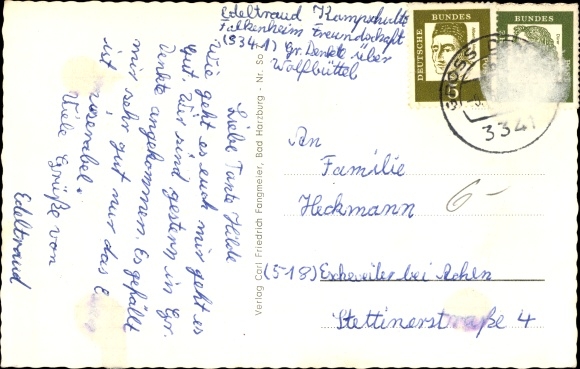 Edeltraud Kampschulte
Falkenheim Freundschaft
(3341) Gr. Denkte über
Wolfbüttel
DEUTSCHE BUNDES
BUNDES
GROSS
3341
Liebe Tante Hilde
Wie geht es euch mir geht es
gut. Wir sind gestern in Gr.
Denkte angekommen. Es gefällt
mir sehr gut nur das E
ist miserabel.
Viele Grüße von
Edeltraud
Verlag Carl Friedrich Fangmeier, Bad Harzburg - Nr. So
An
Familie
Heckmann
6-
(518) Eschweiler bei Achen
Stettinerstraße 4